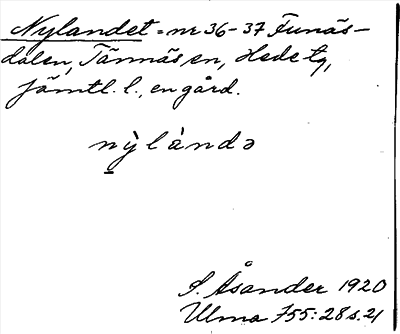 Nylandet = nr 36-37 Funäs-
dalen, Tännäs sn, Hede tg,
Jämtl. l., en gård.
nỳlándə
S. Åsander 1920
Ulma 755:28 s. 21